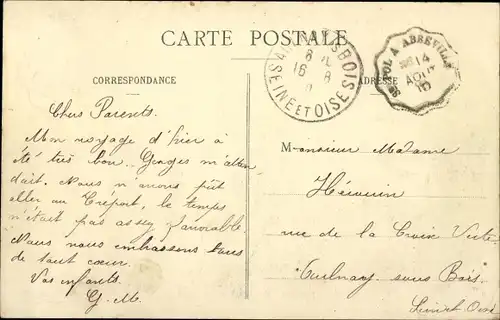 CARTE POSTALE
CORRESPONDANCE
ADRESSE
Chers Parents.
Mon voyage d'hier a
été très bon. Georges m'atten
dait. Nous n'avons pût
aller au Tréport, le temps
n'était pas assez favorable.
Nous nous embrassons tous
de tout cœur.
Vos enfants.
G. M.
Monsieur Madame
rue de la Croix Verte
Aulnay sous Bois
Seine et Oise
SEINE ET OISE
16 8
ST POL A ABBEVILLE
14
AOUT
10